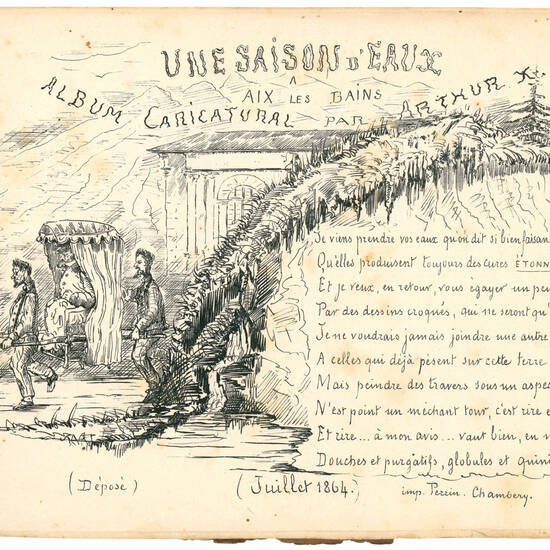 UNE SAISON D'EAUX
A
AIX LES BAINS
ALBUM CARICATURAL PAR ARTHUR X.
Je viens prendre vos eaux qu'on dit si bienfaisan
Qu'elles produisent toujours des cures ÉTONN
Et je veux, en retour, vous égayer un peu
Par des dessins croqués, qui ne seront qu'
Je ne voudrais jamais joindre une autre
A celles qui déjà pèsent sur cette terre
Mais peindre des travers sous un aspec
N'est point un méchant tour, c'est rire e
Et rire... à mon avis... vaut bien, en v
Douches et purgatifs, globules et quini
(Déposé)
(Juillet 1864.)
imp. Perrin. Chambery.